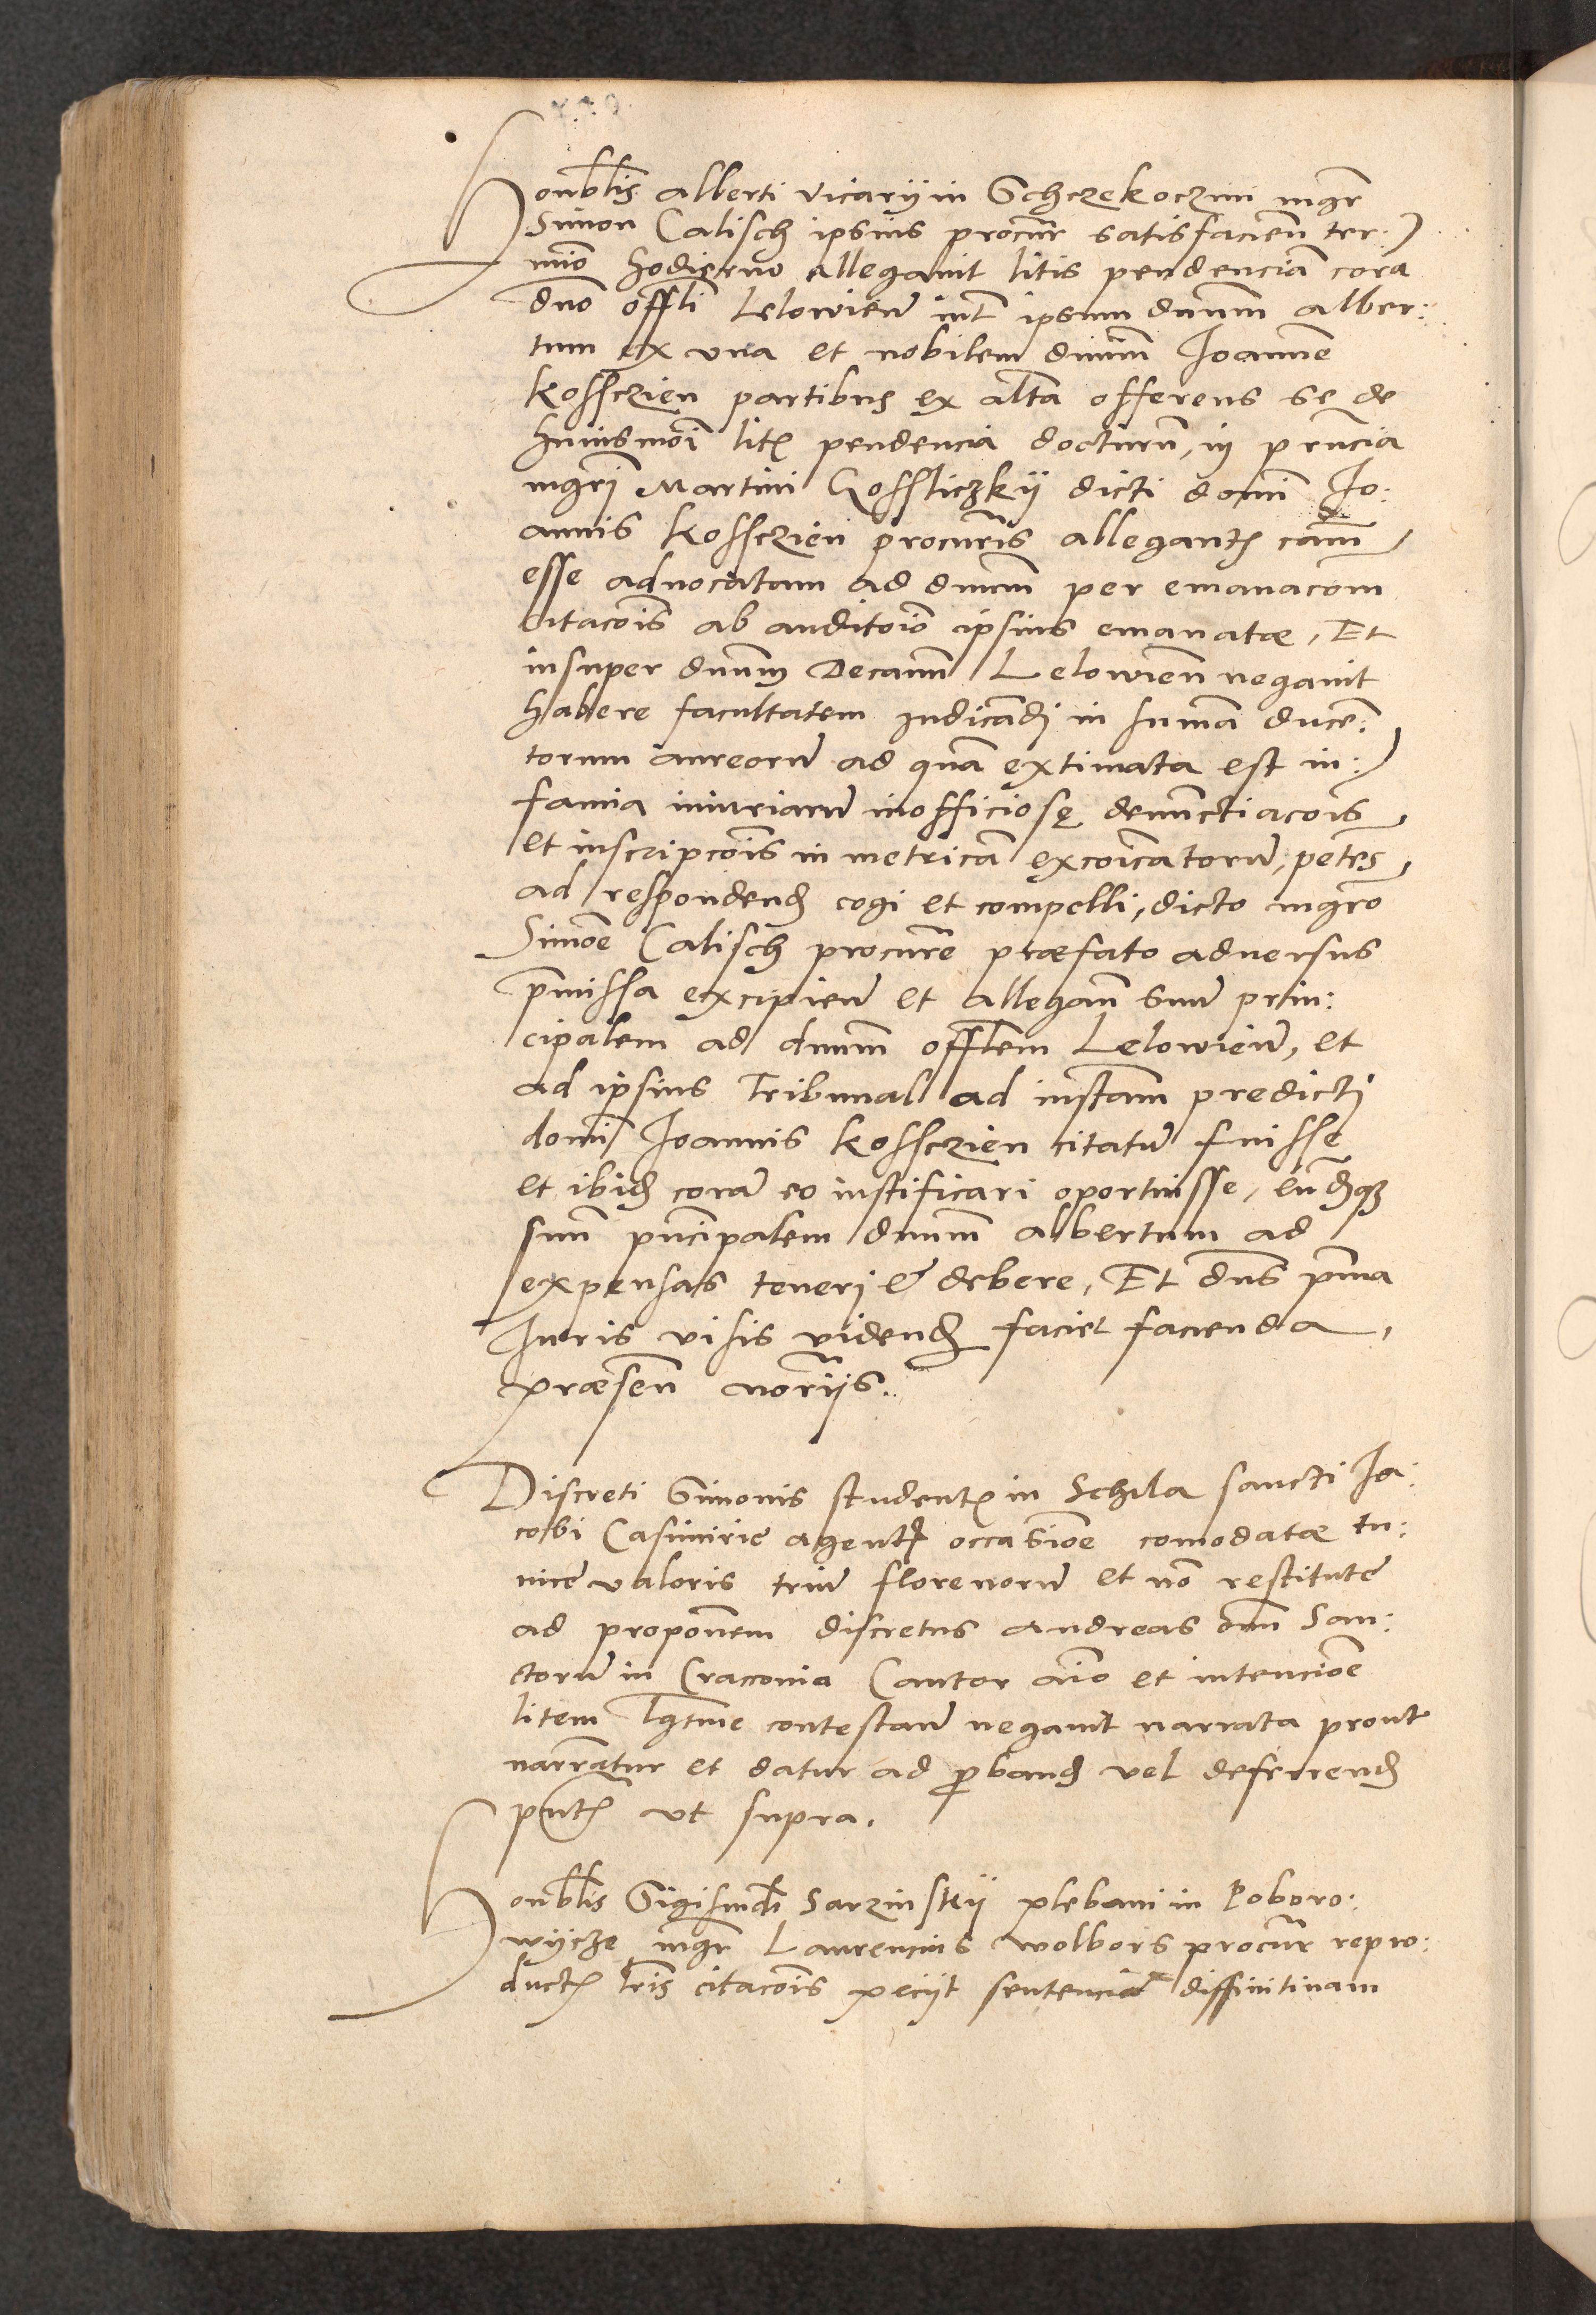 Honblis alberti vicarij in Schczekoczini mgr
Simon Calisch ipsius procur satisfacien ter:
mio hodierno allegavit litis pendenciam cora
dno offli Lelowien int ipsum dnum alber:
tum ex vna et nobilem dnum Joannē
kossczien partibus ex alta offerens se de
huiusmoi litis pendencia docturū, in pruncia
mgri Martini Gosliczkij dicti domi Jo:
annis kossczien procuris allegantis cam
esse aduocatam ad dnum per emanacom
citacois ab auditoio ipsius emanatae, Et
insuper dnum Decanum Lelowien negavit
habere facultatem iudicandi in suma ducē:
torum aureorū ad quā extimata est in:
famia iniuriarū inofficiosę denunctiacois
et inscripcois in metricā excoicatorū, petēs
ad respondend cogi et compelli, dicto mgro
Simoē Calisch procure praefato aduersus
pmissa excipien et allegan suū prin:
cipalem ad dnum offlem Lelowien, et
ad ipsius Tribunal ad instam predicti
domi Joannis kossczien citatū fuisse
et ibid corā eo iustificari oportuisse, eundemque
suū principalem dnum albertum ad
expensas teneri & debere, Et dns prma
Juris visis vidend faciet facienda,
praesen noriis.
Discreti Simonis studentis in Schola sancti Ja:
cobi Casimirie agentis occasioe comodatae tu:
nice valoris triū florenorū et nō restitute
ad proponem discretus andreas om San:
ctorū in Cracouia Cantor aio et intencioe
litem lgtme contestan negauit narrata prout
narrantur et datur ad proband vel deferrend
pntis vt supra.
Honblis Sigismdi Sarzinskij plebani in Poboro:
wycze mgr Laurencius wolbors procur repro:
ductis lris citacois peciit sentenciā diffinitiuam